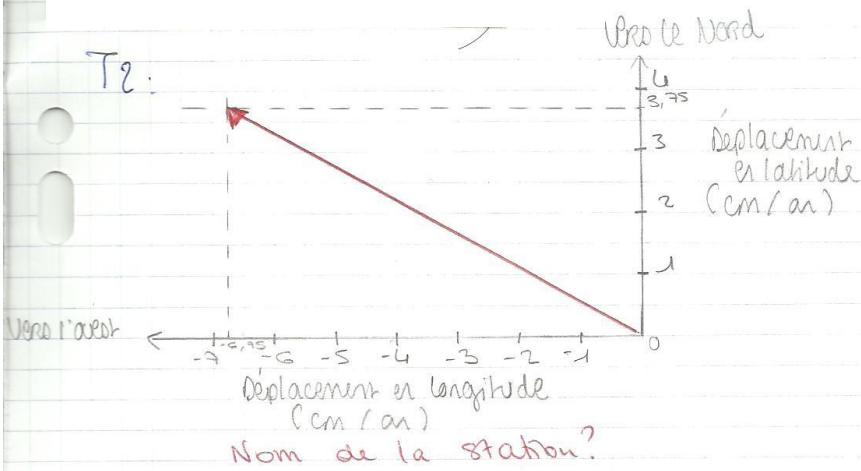 Vers le Nord
T2:
4
3,75
3
Déplacement
en latitude
(cm/an)
2
1
Vers l'ouest
-7 -6,75 -6 -5 -4 -3 -2 -1 0
Déplacement en longitude
(cm/an)
Nom de la station?